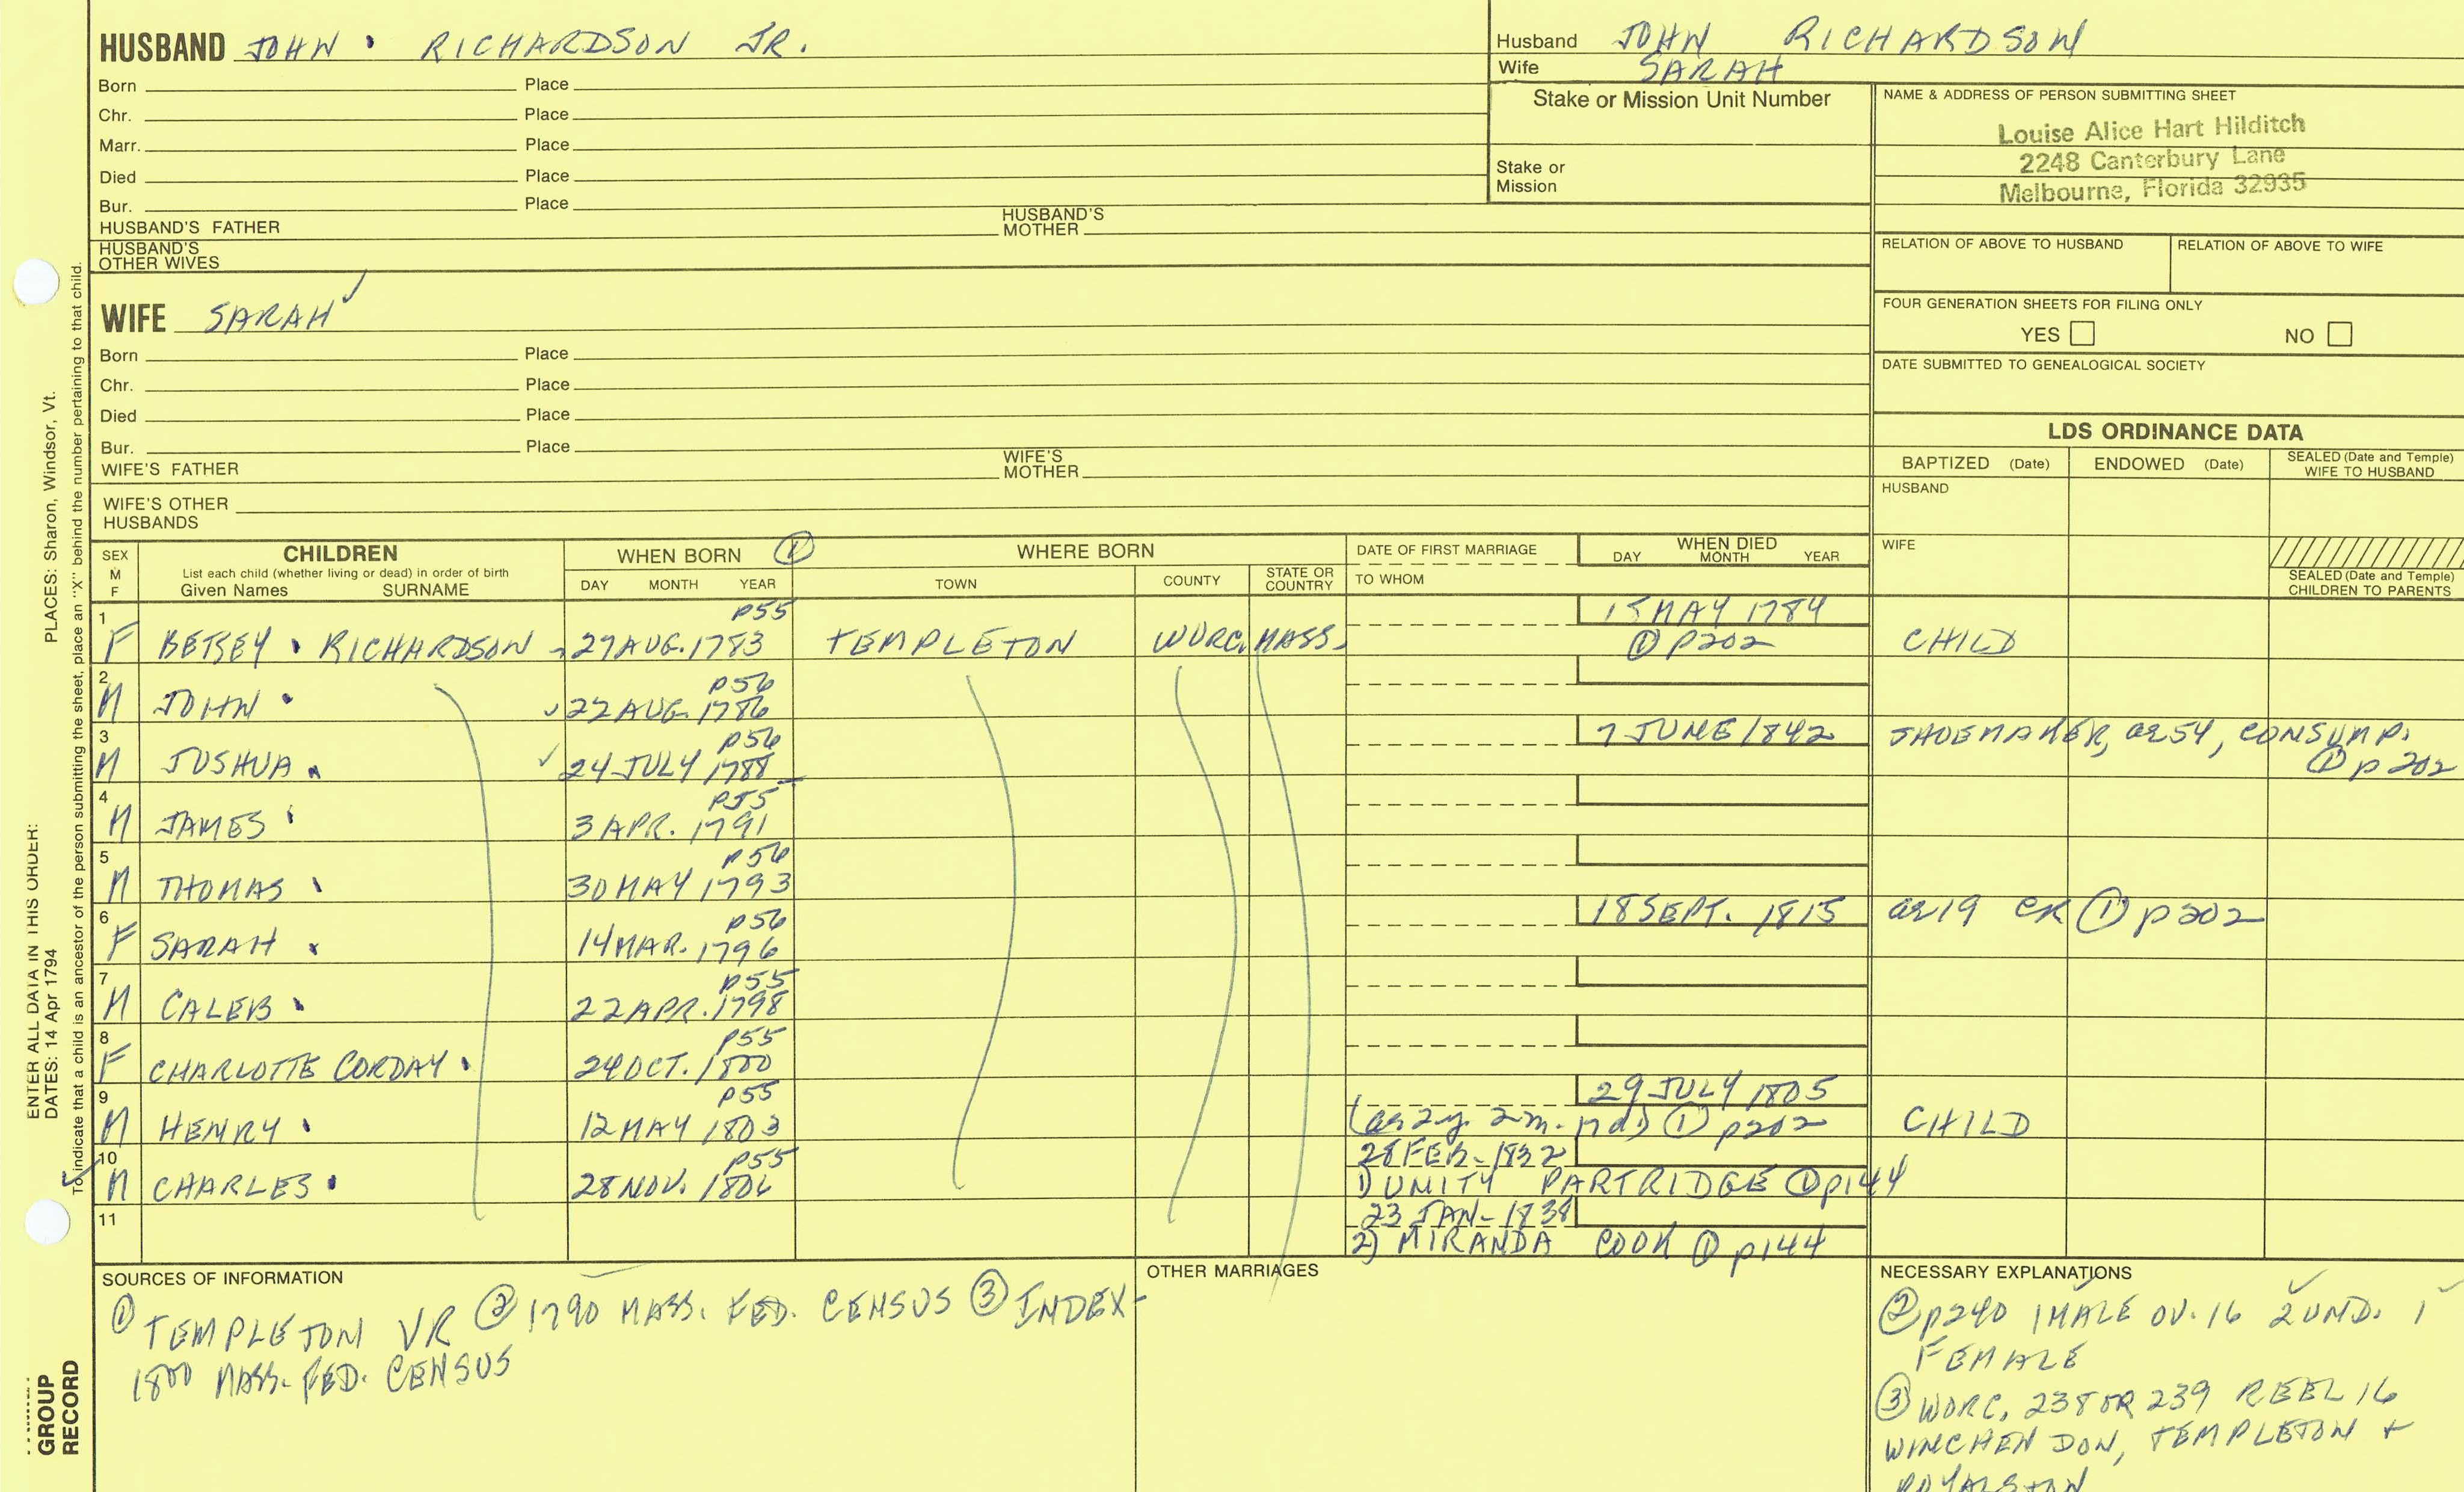 HUSBAND JOHN RICHARDSON JR.
Born Place
Chr. Place
Marr. Place
Died Place
Bur. Place
HUSBAND'S FATHER HUSBAND'S MOTHER
HUSBAND'S OTHER WIVES
WIFE SARAH
Born Place
Chr. Place
Died Place
Bur. Place
WIFE'S FATHER WIFE'S MOTHER
WIFE'S OTHER HUSBANDS
Husband JOHN RICHARDSON
Wife SARAH
Stake or Mission Unit Number
Stake or Mission
NAME & ADDRESS OF PERSON SUBMITTING SHEET
Louise Alice Hart Hilditch
2248 Canterbury Lane
Melbourne, Florida 32935
RELATION OF ABOVE TO HUSBAND RELATION OF ABOVE TO WIFE
FOUR GENERATION SHEETS FOR FILING ONLY
YES NO
DATE SUBMITTED TO GENEALOGICAL SOCIETY
LDS ORDINANCE DATA
BAPTIZED (Date) ENDOWED (Date) SEALED (Date and Temple) WIFE TO HUSBAND
HUSBAND
WIFE
SEALED (Date and Temple) CHILDREN TO PARENTS
SEX M F
CHILDREN
List each child (whether living or dead) in order of birth
Given Names SURNAME
WHEN BORN ①
DAY MONTH YEAR
WHERE BORN
TOWN COUNTY STATE OR COUNTRY
DATE OF FIRST MARRIAGE
TO WHOM
WHEN DIED
DAY MONTH YEAR
1 P55 MAY 1784
F BETSEY RICHARDSON 27 AUG. 1783 TEMPLETON WORC. MASS. ① P202 CHILD
2 P56
M JOHN 22 AUG. 1786
3 P56 7 JUNE 1842 SHOEMAKER, ae 54, CONSUMP.
M JOSHUA 24 JULY 1788 ① p 202
4 P55
M JAMES 3 APR. 1791
5 P56
M THOMAS 30 MAY 1793
6 P56 18 SEPT. 1815 ae 19 CR ① p202
F SARAH 14 MAR. 1796
7 P55
M CALEB 22 APR. 1798
8 P55
F CHARLOTTE CORDAY OCT. 1800
9 P55 29 JULY 1805
M HENRY 12 MAY 1803 (ae 2y. 2m. 17d) ① p202 CHILD
10 P55 28 FEB. 1832
M CHARLES 28 NOV. 1806 1) UNITY PARTRIDGE ① p144
11 23 JAN. 1838
2) MIRANDA COOK ① p144
SOURCES OF INFORMATION
① TEMPLETON VR ② 1790 MASS. FED. CENSUS ③ INDEX-
1800 MASS. FED. CENSUS
OTHER MARRIAGES
NECESSARY EXPLANATIONS
② p240 1 MALE OV. 16 2 UND. 1
FEMALE
③ WORC. 238 OR 239 REEL 16
WINCHENDON, TEMPLETON +
ROYALSTON
ENTER ALL DATA IN THIS ORDER:
DATES: 14 Apr 1794 PLACES: Sharon, Windsor, Vt.
To indicate that a child is an ancestor of the person submitting the sheet, place an "X" behind the number pertaining to that child.
GROUP
RECORD